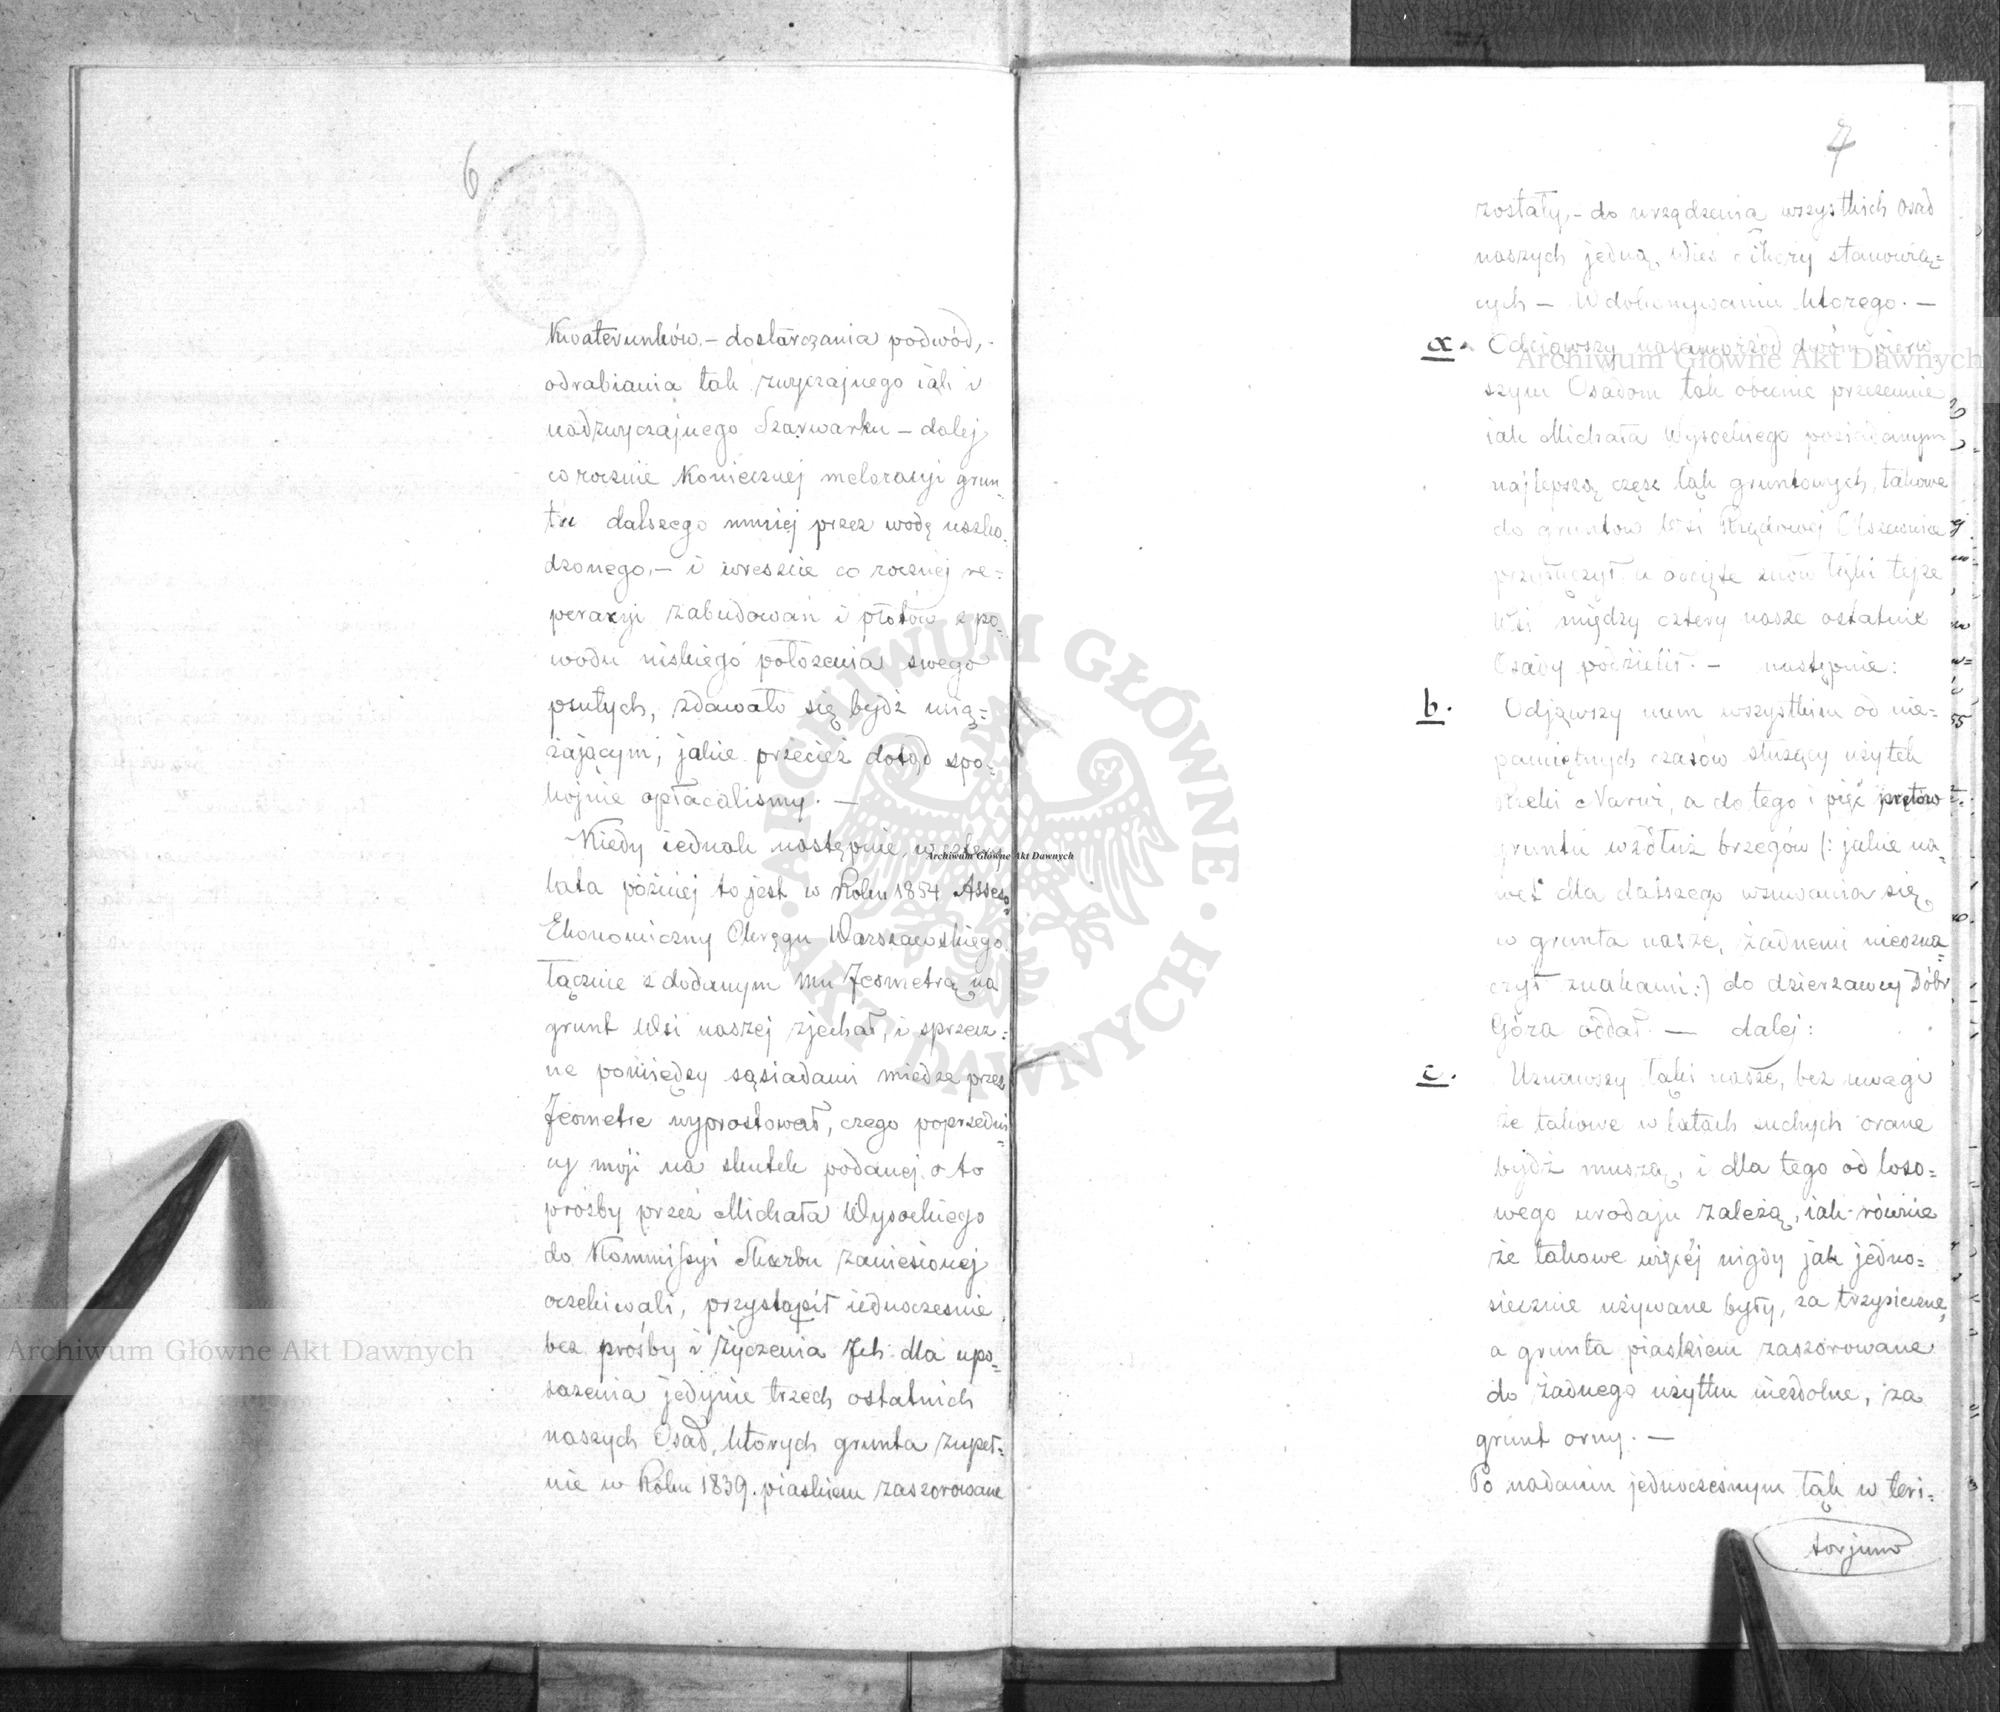 6
Kwaterunków,– dostarczania podwód,–
odrabiania tak zwyczajnego iak i
nadzwyczajnego Szarwarku – dalej
corocznie Koniecznej melioracyi grun-
tu dalszego mniej przez wodę uszko-
dzonego,– i wreszcie co rocznej re=
peracyi zabudowań i płotów z po-
wodu niskiego położenia swego
psutych, zdawało się bydź ucią=
żającym, jakie przecież dotąd spo-
kojnie opłacaliśmy. –
Kiedy iednak następnie w cztery
lata później to jest w Roku 1854 Assesor
Ekonomiczny Okręgu Warszawskiego
łącznie z dodanym mu Jeometrą na
grunt Wsi naszej zjechał, i sprzecz=
ne pomiędzy sąsiadami miedze przez
Jeometrę wyprostował, czego poprzedni=
cy moji na skutek podanej o to
prośby przez Michała Wysockiego
do Kommissyi Skarbu zaniesionej
oczekiwali, przystąpił iednocześnie
bez prośby i życzenia Ich dla upo-
sażenia jedynie trzech ostatnich
naszych Osad, których grunta zupeł=
nie w Roku 1839. piaskiem zaszorowane
7
zostały,– do urządzenia wszystkich osad
naszych jedną Wieś Cikory stanowią=
cych – W dokonywaniu którego. –
a. Odciąwszy nasamprzód dwóm pierw-
szym Osadom tak obecnie przezemnie
iak Michała Wysockiego posiadanym
najlepszą część łąk gruntowych, takowe
do gruntów Wsi Rządowej Olszewnica
przyłączył a odcięte znów łąki tejże
Wsi między cztery nasze ostatnie
Osady podzielił. – następnie:
b. Odjąwszy nam wszystkim od nie=
pamiętnych czasów służący użytek
rzeki Narwi, a do tego i pięć prętów
gruntu wzdłuż brzegów (: jakie na-
wet dla dalszego wsuwania się
w grunta nasze, żadnemi nieozna=
czył znakami :) do dzierżawcy Dóbr
Góra oddał. – dalej:
c. Uznawszy łąki nasze, bez uwagi
że takowe w latach suchych orane
bydź muszą, i dla tego od loso=
wego urodzaju zależą, iak równie
że takowe więcej nigdy jak jedno=
siecznie używane były, za trzysieczne,
a grunta piaskiem zaszorowane
do żadnego użytku niezdolne, za
grunt orny. –
Po nadaniu jednoczesnym tak w teri=
torjum
ARCHIWUM GŁÓWNE AKT DAWNYCH
Archiwum Główne Akt Dawnych
Archiwum Główne Akt Dawnych
Archiwum Główne Akt Dawnych